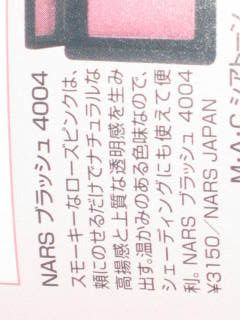 NARS ブラッシュ 4004
スモーキーなローズピンクは、
頬にのせるだけでナチュラルな
高揚感と上質な透明感を生み
出す。温かみのある色味なので、
シェーディングにも使えて便
利。NARS ブラッシュ 4004
¥3150／NARS JAPAN
M・A・C シアトーン